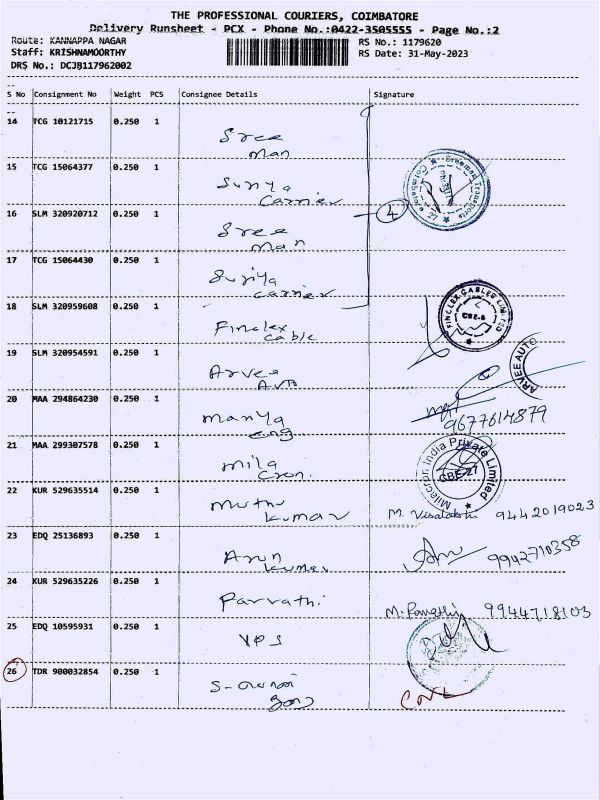 THE PROFESSIONAL COURIERS, COIMBATORE
Delivery Runsheet - PCX - Phone No.:0422-3505555 - Page No.:2
Route: KANNAPPA NAGAR
RS No.: 1179620
Staff: KRISHNAMOORTHY
RS Date: 31-May-2023
DRS No.: DCJB117962002
S No Consignment No Weight PCS Consignee Details Signature
14 TCG 10121715 0.250 1
Sree
man
15 TCG 15064377 0.250 1
Suriya
Carrier
16 SLM 320920712 0.250 1
4
Sree
man
17 TCG 15064430 0.250 1
Suriya
carrier
18 SLM 320959608 0.250 1
Finolex
cable
FINOLEX CABLES LIMITED
19 SLM 320954591 0.250 1
Arvee
Auto
ARVEE AUTO
20 MAA 294864230 0.250 1
Manya
eng
9677614879
21 MAA 299307578 0.250 1
Mila
cron.
Milacron India Private Limited
CBE-27
22 KUR 529635514 0.250 1
Muthu
kumar
M. Visalakshi 9442019023
23 EDQ 25136893 0.250 1
Arun
kumar
9942710358
24 KUR 529635226 0.250 1
Parvathi
9944718103
25 EDQ 10595931 0.250 1
VPS
26 TDR 900032854 0.250 1